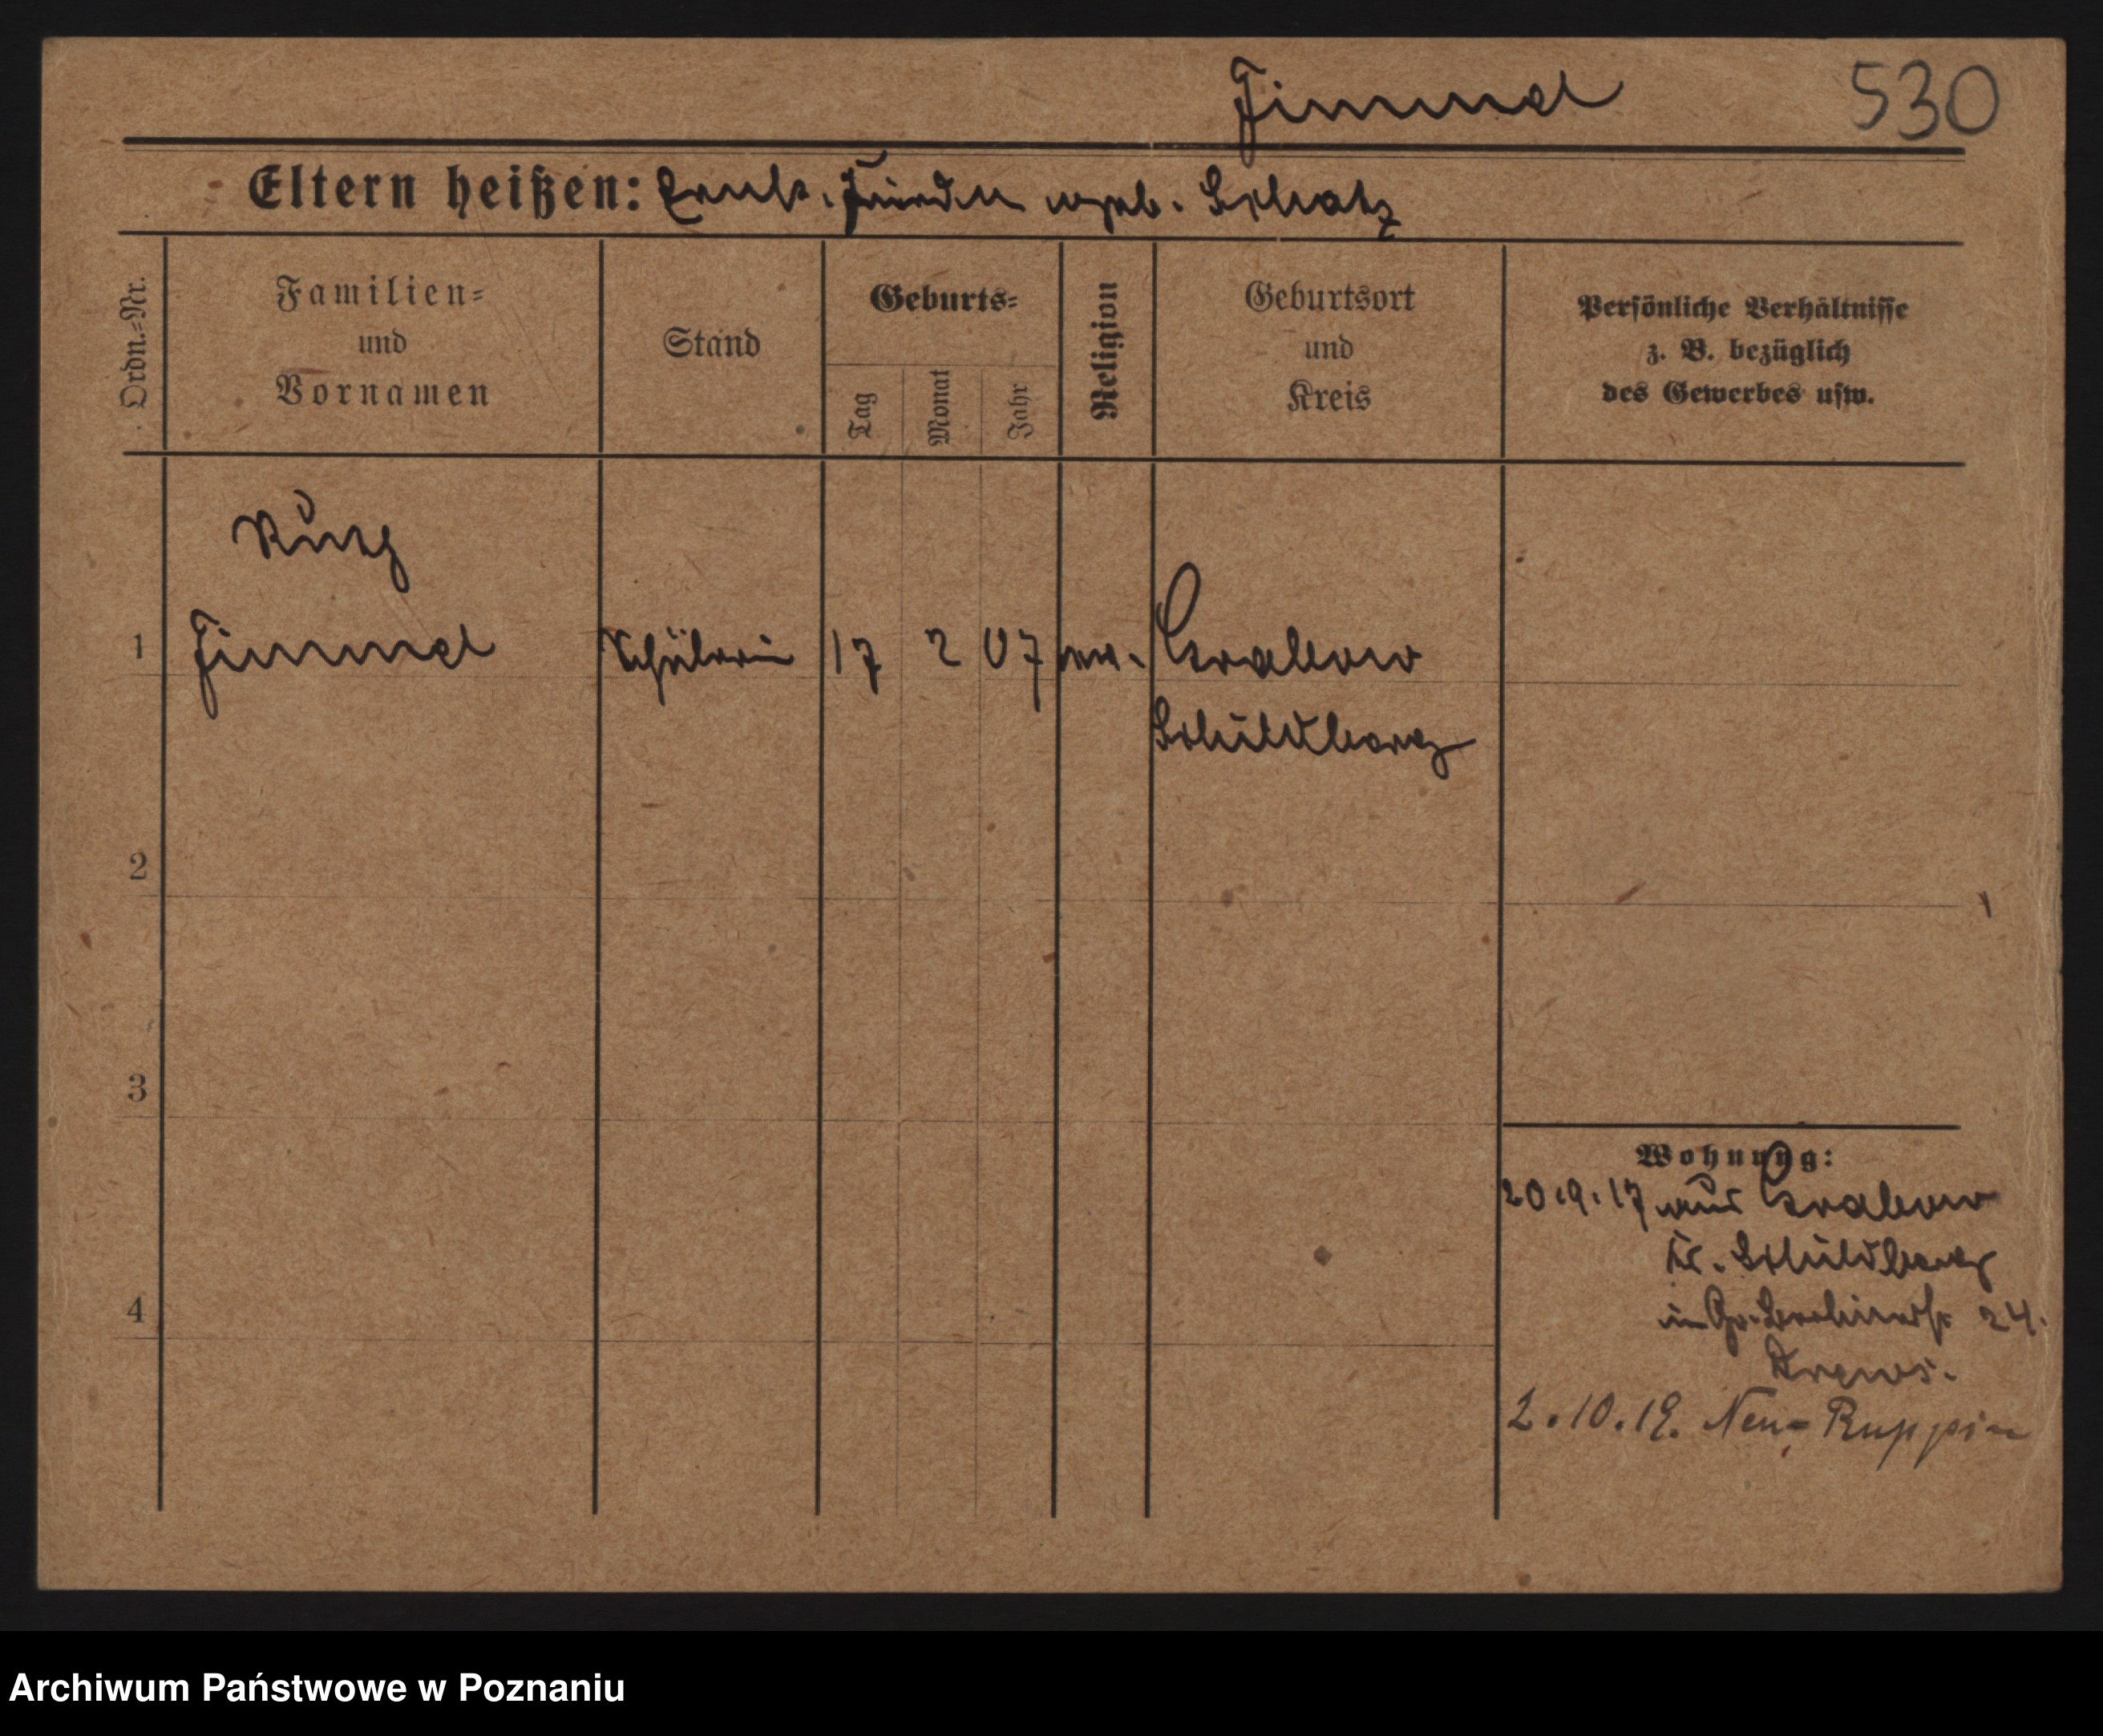 Fimmel 530
Eltern heißen: Ernst. geb. Schatz
Ordn.-Nr.
Familien=
und
Vornamen
Stand
Geburts=
Tag
Monat
Jahr
Religion
Geburtsort
und
Kreis
Persönliche Verhältnisse
z. B. bezüglich
des Gewerbes usw.
Ruth
1 Fimmel Schülerin 17 2 07 ev. Grabow
Schildberg
2
3
4
Wohnung:
20.9.17 aus Grabow
Kr. Schildberg
in Gr. 24.
2.10.19. Neu=Ruppin
Archiwum Państwowe w Poznaniu